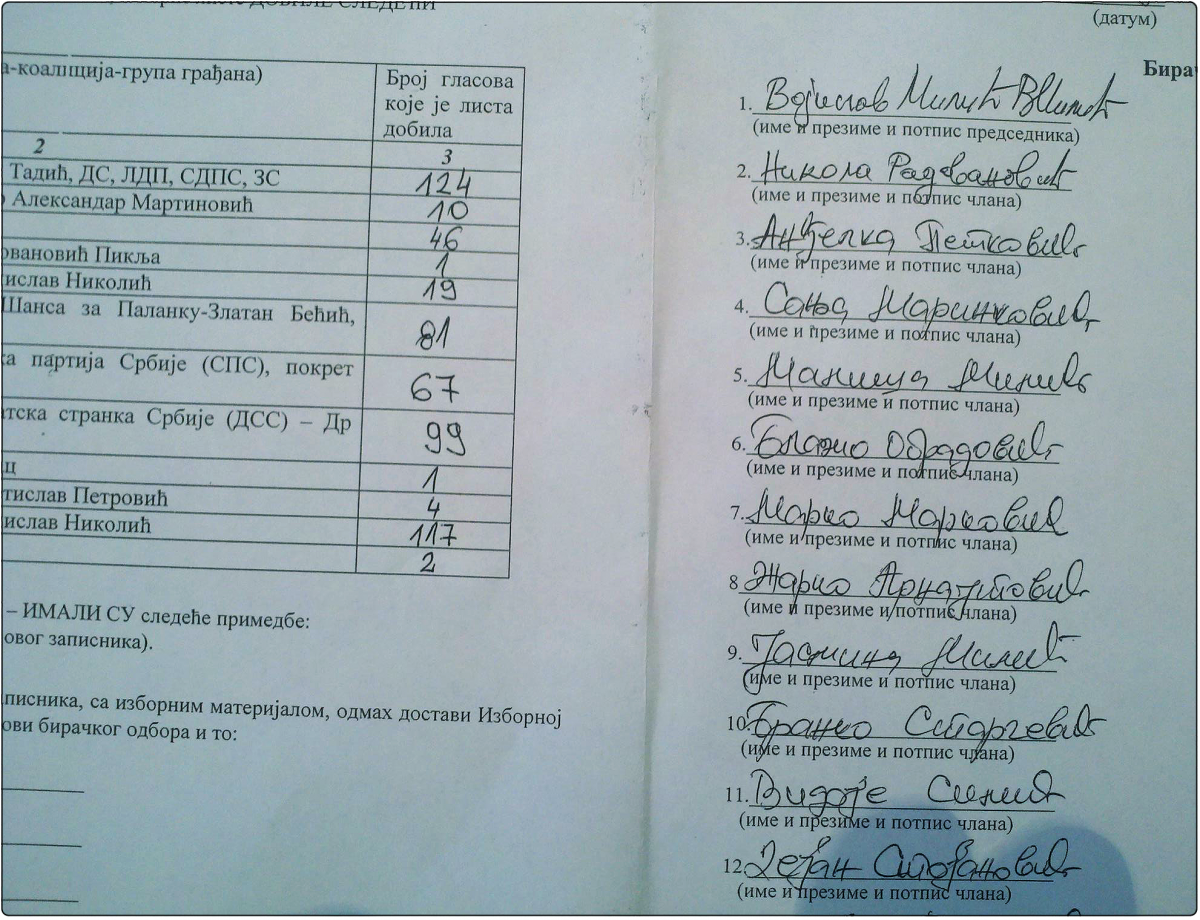 листе ДОБИЛЕ СЛЕДЕЋИ
а-коалиција-група грађана)
Број гласова
које је листа
добила
2
3
Тадић, ДС, ЛДП, СДПС, ЗС
124
Александар Мартиновић
10
46
овановић Пикља
1
ислав Николић
19
Шанса за Паланку-Златан Бећић,
81
ка партија Србије (СПС), покрет
67
атска странка Србије (ДСС) – Др
99
ц
1
тислав Петровић
4
ислав Николић
117
2
– ИМАЛИ СУ следеће примедбе:
овог записника).
писника, са изборним материјалом, одмах достави Изборној
ови бирачког одбора и то:
(датум)
Бирач
1. Војислав Милић
(име и презиме и потпис председника)
2. Никола Радовановић
(име и презиме и потпис члана)
3. Анђелка Петковић
(име и презиме и потпис члана)
4. Сања Маринковић
(име и презиме и потпис члана)
5. Минић
(име и презиме и потпис члана)
6. Благио Обрадовић
(име и презиме и потпис члана)
7. Марко Марковић
(име и презиме и потпис члана)
8 Жарко
(име и презиме и потпис члана)
9. Јасмина Милић
(име и презиме и потпис члана)
10. Бранко
(име и презиме и потпис члана)
11. Видоје Симић
(име и презиме и потпис члана)
12. Дејан Стојановић
(име и презиме и потпис члана)